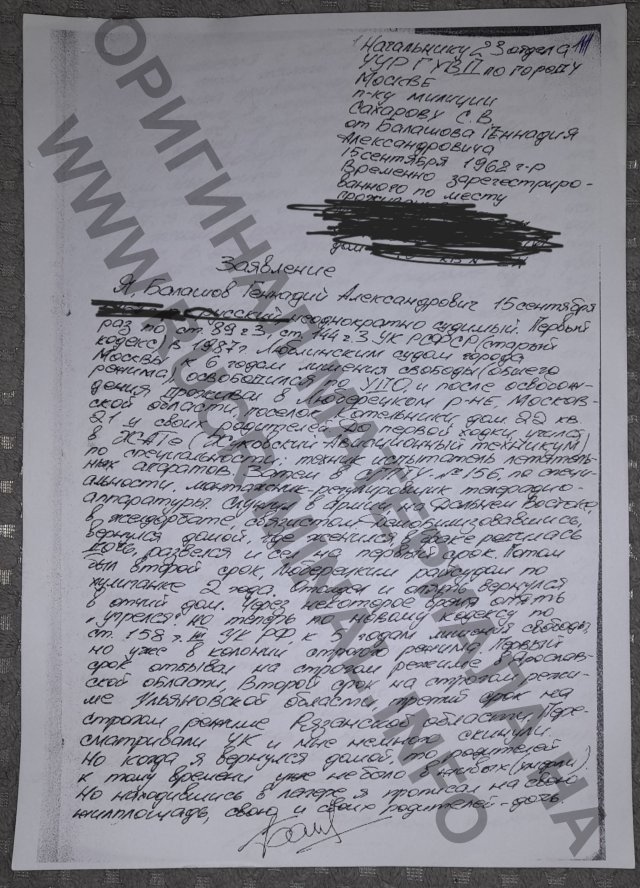 Начальнику 23 отдела
УУР ГУВД по городу
Москве
п-ку милиции
Сахарову С.В.
от Балашова Геннадия
Александровича
15 сентября 1962 г-р
Временно зарегестриро-
ванного по месту
дом
Заявление
Я, Балашов Геннадий Александрович 15 сентября
русский неоднократно судимый. Первый
раз по ст. 89 ч 3, ст. 144 ч 3 УК РСФСР (старый
кодекс) в 1987 г. Люблинским судом города
Москвы к 6 годам лишения свободы (общего
режима), освободился по УДО, и после освобож-
дения проживал в Люберецком р-не, Москов-
ской области, поселок Котельники, дом 22 кв
21 у своих родителей. До первой ходки учился
в ЖАТе (Жуковский Авиационный техникум)
по специальности: техник-испытатель летатель-
ных апаратов. Затем в ПТУ-№156, по специ-
альности, монтажник-регулировщик телерадио-
аппаратуры. Служил в армии на Дальнем Востоке
в желдорбате, связистом. Демобилизовавшись,
вернулся домой, где женился, в браке родилась
дочь, развелся и сел на первый срок. Потом
был второй срок, Люберецким райсудом по
хулиганке 2 года. Отсидел и опять вернулся
в отчий дом. Через некоторое время опять
"угрелся" но теперь по новому кодексу по
ст. 158 ч. III УК РФ, к 5 годам лишения свободы,
но уже в колонии строгого режима. Первый
срок отбывал на строгом режиме в Ярослав-
ской области, Второй срок на строгом режи-
ме Ульяновской области, третий срок на
строгом режиме Рязанской области. Пере-
сматривали УК и мне немного скинули.
Но когда я вернулся домой, то родителей
к тому времени уже не было в живых (умерли).
Но находившись в лагере, я прописал на свою
жилплощадь, свою и своих родителей - дочь.
ОРИГИНАЛ МАТЕРИАЛА НА
WWW.RUCRIMINAL.INFO